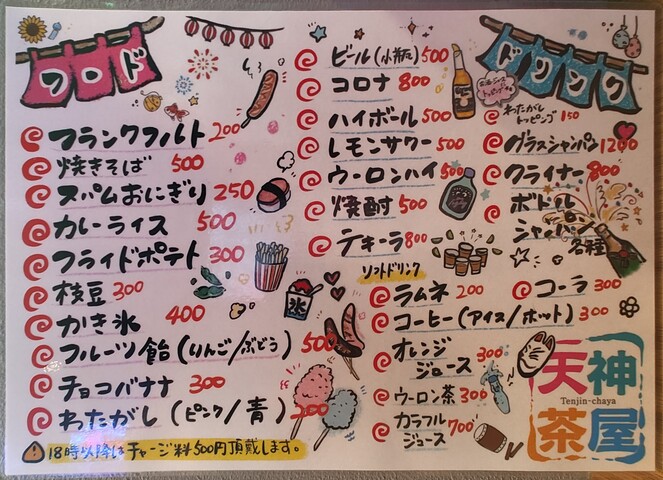 フード
フランクフルト 200
焼きそば 500
スパムおにぎり 250
カレーライス 500
フライドポテト 300
枝豆 300
かき氷 400
フルーツ飴(りんご/ぶどう) 500
チョコバナナ 300
わたがし(ピンク/青) 200
18時以降はチャージ料500円頂戴します。
氷
ドリンク
ビール(小瓶) 500
コロナ 800
ハイボール 500
レモンサワー 500
ウーロンハイ 500
焼酎 500
テキーラ 800
わたがし
トッピング 150
グラスシャンパン 1200
クライナー 800
ボトル
シャンパン
各種
ソフトドリンク
ラムネ 200
コーラ 300
コーヒー(アイス/ホット) 300
オレンジ
ジュース 300
ウーロン茶 300
カラフル
ジュース 700
天神
Tenjin-chaya
茶屋